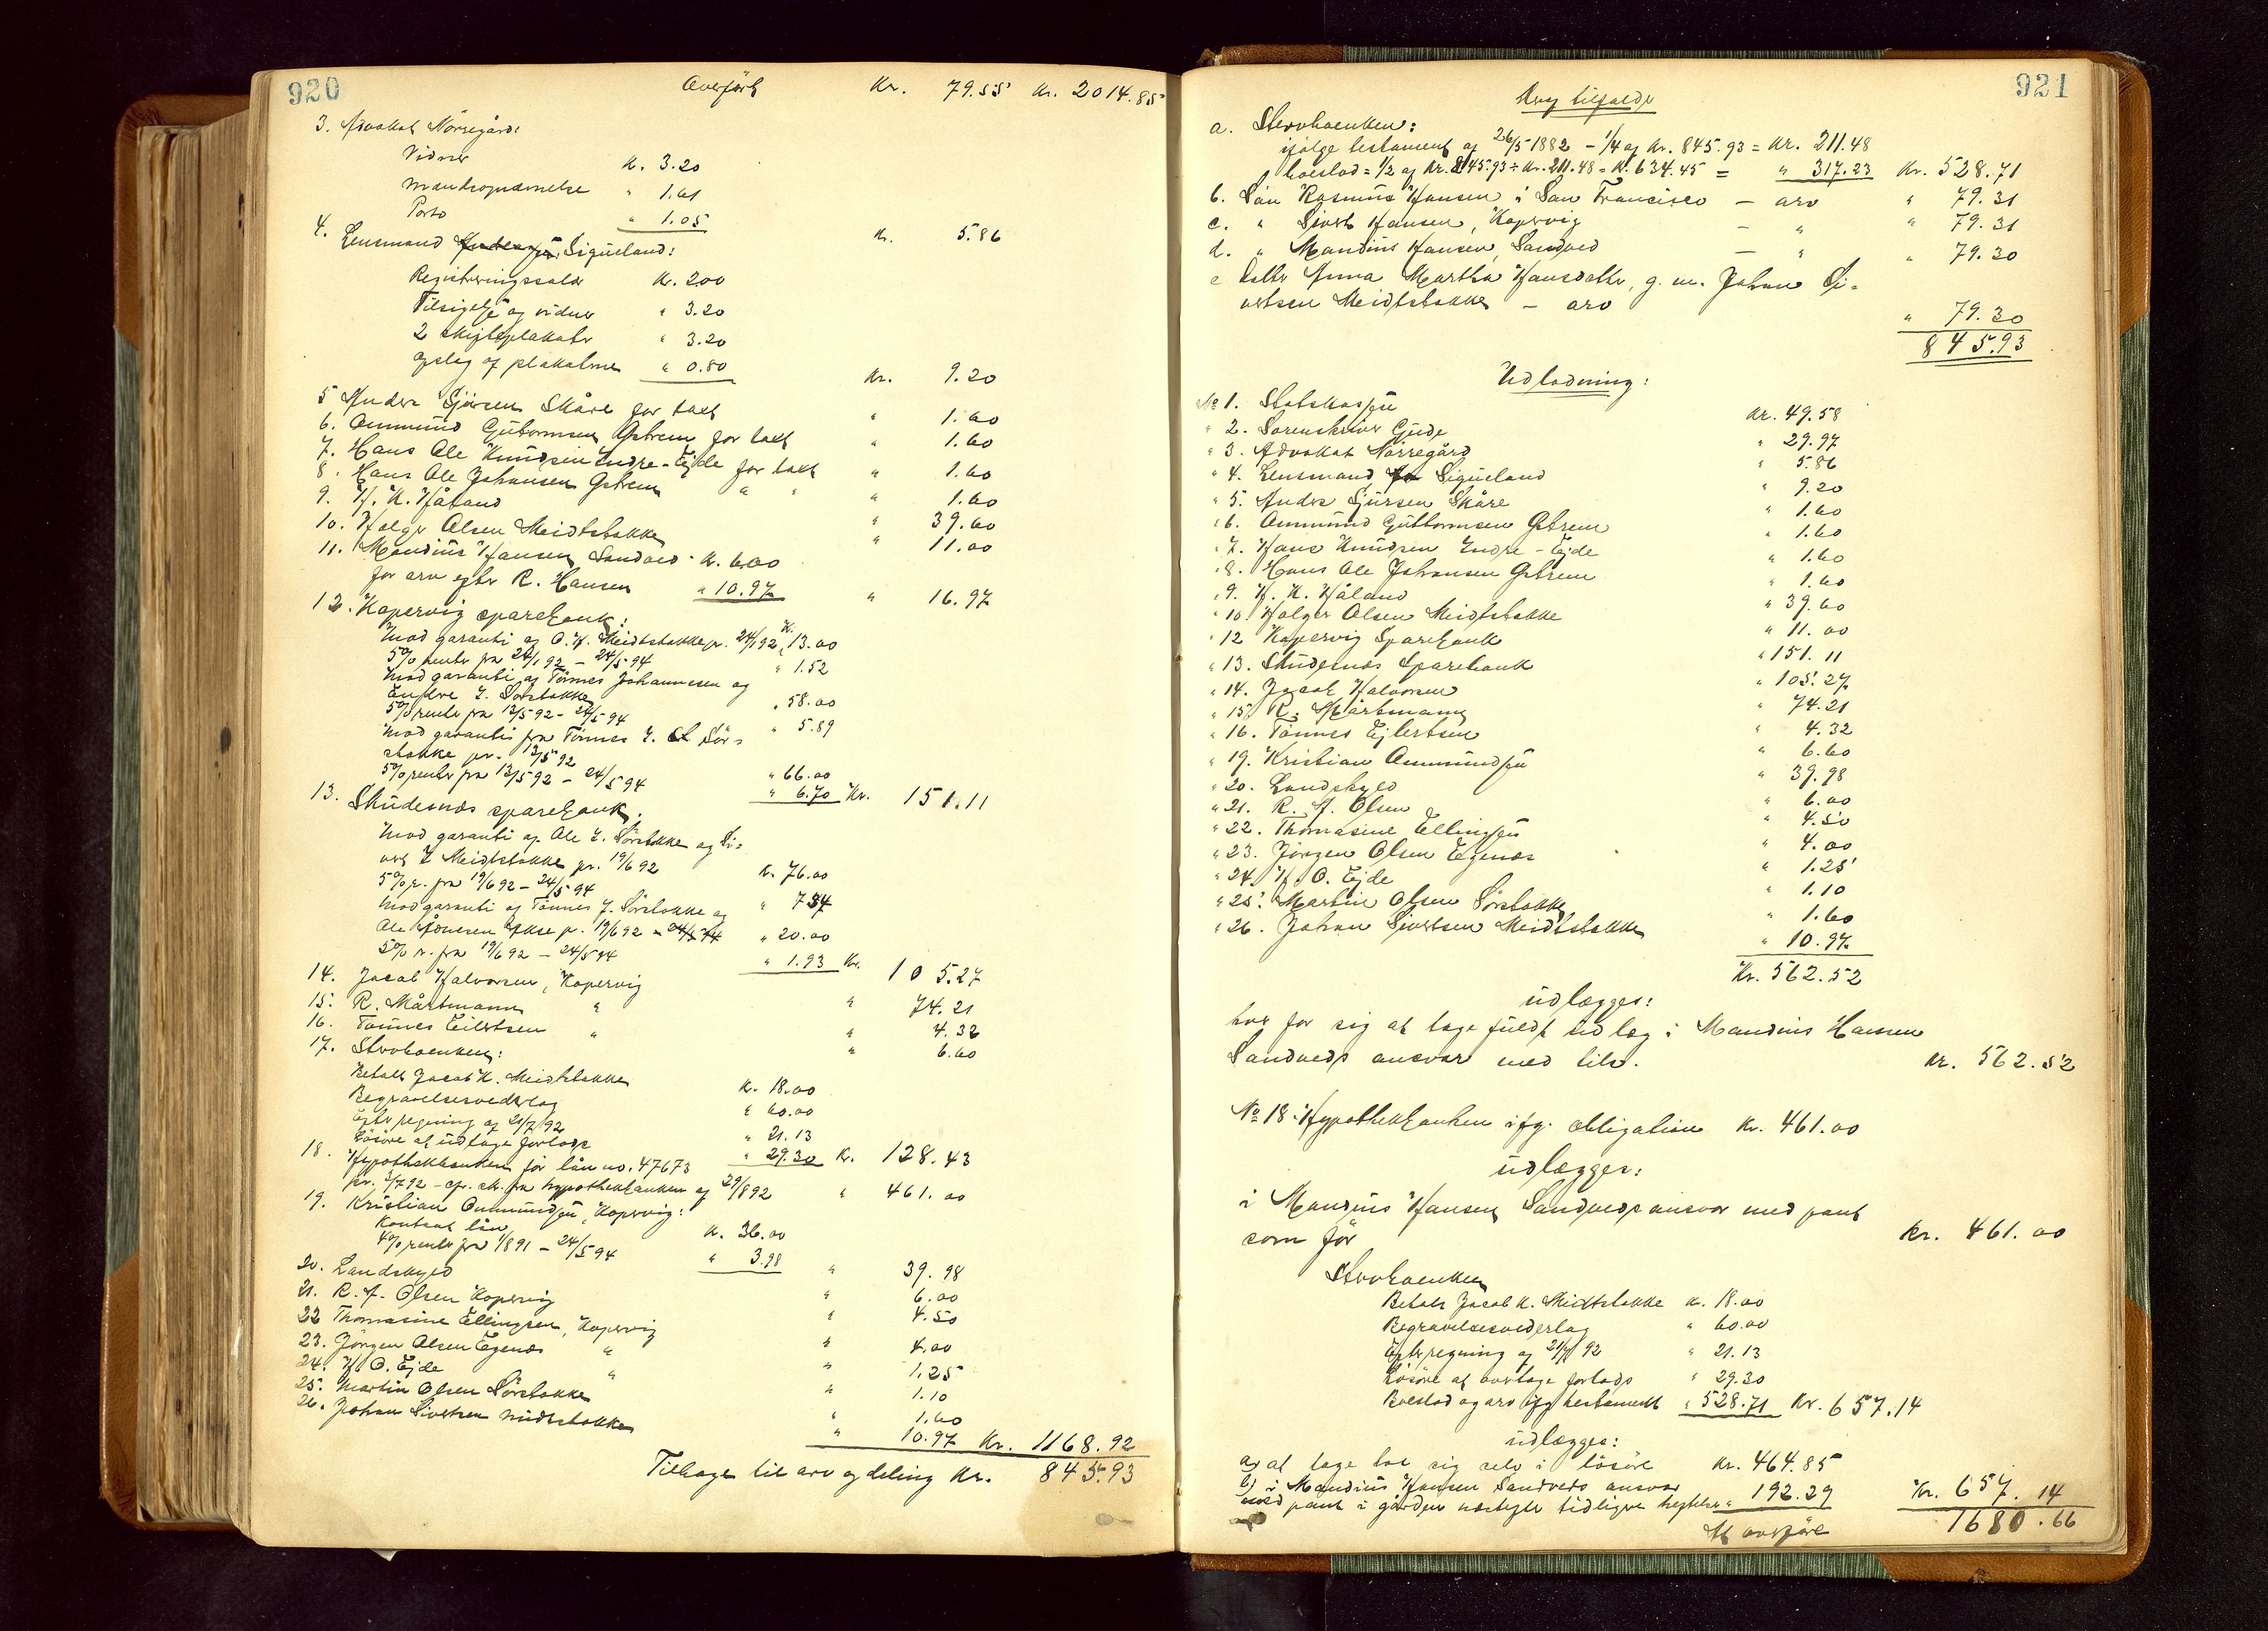 920
Overført Kr. 79.55 Kr. 2014.85
3. Advokat Nørregård:
Vidner K. 3.20
mændsopnævnelse " 1.61
Porto " 1.05 Kr. 5.86
4. Lensmand Sigueland:
Registreringssalær Kr. 200
Tilsigelse og vidner " 3.20
2 skifteplakater " 3.20
Opslag af plakaterne " 0.80 Kr. 9.20
5 Anders Sjursen Skåre for takt " 1.60
6. Ommund Guttormsen Østrem for takt " 1.60
7. Hans Ole Knudsen Indre-Ejde for takt " 1.60
8. Hans Ole Johansen Østrem " " " 1.60
9. H. K. Håland " 39.60
10. Holger Olsen Meidtstokke " 11.00
11. Mandius Hansen Sandved Kr. 6.00
for arv efter R. Hansen " 10.97 " 16.97
12. Kopervig sparebank:
mod garanti af O. H. Meidtstokke pr. 24/1 92 K. 13.00
5% renter fra 24/1 92 - 24/5 94 " 1.52
mod garanti af Tönnes Johannesen og
Endre I. Sørstokke " 58.00
5% rente fra 12/5 92 - 24/5 94 " 5.89
mod garanti fra Tönnes I. Sør=
stokke pr. 12/5 92 " 66.00
5% renter fra 12/5 92 - 24/5 94 " 6.70 Kr. 151.11
13. Skudesnæs sparebank:
mod garanti af Ole I. Sørstokke og Si=
vert I Meidtstokke pr. 19/6 92 Kr. 76.00
5% r. fra 19/6 92 - 24/5 94 " 734
mod garanti af Tönnes J. Sørstokke og
Ole pr. 19/6 92 - 24/5 94 " 20.00
5% r. fra 19/6 92 - 24/5 94 " 1.93 Kr. 105.27
14. Jacob Halvorsen, Kopervig " 74.21
15. R. Mårtmann " " 4.32
16. Tönnes Eilertsen " " 6.60
17. Stervboenken:
Betalt Jacob K. Meidtstokke K. 18.00
Begravelsesvederlag " 60.00
Efter regning af 21/7 92 " 21.13
Løsøre at udtage forlods " 29.30 Kr. 128.43
18. Hypothekbanken for lån no. 47673
pr. 1/7 92 - cfr. sk. fra hypothekbanken af 29/8 92 " 461.00
19. Kristian Ommundsen, Kopervig:
Kontant lån K. 36.00
4% renter fra 1/8 91 - 24/5 94 " 3.98 " 39.98
20. Landskyld " 6.00
21. R. f. Olsen Kopervig " 4.50
22 Thomasine Ellingsen, Kopervig " 4.00
23. Jörgen Olsen Egenæs " " 1.25
24. H. O. Ejde " " 1.10
25. Martin Olsen Sørstokke " 1.60
26. Johan Sivertsen midtstokke " 10.97 Kr. 1168.92
Tilbage til arv og deling Kr. 845.93
921
Arv tilfalder
a. Stervboenken:
ifølge testament af 26/5 1882 - 1/4 af Kr. 845.93 = Kr. 211.48
boeslod = 1/2 af Kr. 845.93 ÷ Kr. 211.48 = K. 634.45 = " 317.23 Kr. 528.71
b. Sön Rasmus Hansen i San Francisco - arv " 79.31
c. " Sivert Hansen, Kopervig - " " 79.31
d. " Mandius Hansen, Sandved - " " 79.30
e datter Anna Martha Hansdatter, g. m. Johan Si=
vertsen Meidtstokke - arv " 79.30
845.93
Udlodning:
No 1. Statskassen Kr. 49.58
" 2. Sorenskriver Gjede " 29.97
" 3. Advokat Nørregård " 5.86
" 4. Lensmand Sigueland " 9.20
" 5. Anders Sjursen Skåre " 1.60
" 6. Ommund Guttormsen Østrem " 1.60
" 7. Hans Knudsen Indre-Ejde " 1.60
" 8. Hans Ole Johansen Østrem " 1.60
" 9. H. K. Håland " 39.60
" 10. Holger Olsen Meidtstokke " 11.00
" 12 Kopervig Sparebank " 151.11
" 13. Skudesnæs Sparebank " 105.27
" 14. Jacob Halvorsen " 74.21
" 15. R. Mårtmann " 4.32
" 16. Tönnes Ejlertsen " 6.60
" 19. Kristian Ommundsen " 39.98
" 20. Landskyld " 6.00
" 21. R. f. Olsen " 4.50
" 22. Thomasine Ellingsen " 4.00
" 23. Jörgen Olsen Egenæs " 1.25
" 24. H. O. Ejde " 1.10
" 25. Martin Olsen Sørstokke " 1.60
" 26. Johan Sivertsen Meidtstokke " 10.97
Kr. 562.52
udlægges:
hver for sig at tage fuldt udlæg i Mandius Hansen
Sandveds ansvar med tils. Kr. 562.52
No 18. Hypothekbanken ifg. obligation Kr. 461.00
udlægges:
i Mandius Hansen Sandveds ansvar med pant
som før Kr. 461.00
Stervboenken
Betalt Jacob K. Midtstokke K. 18.00
Begravelsesvederlag " 60.00
Efter regning af 21/7 92 " 21.13
Løsøre at overtage forlods " 29.30
Boeslod og arv ifg testament " 528.71 Kr. 657.14
udlægges:
a, at tage hos sig selv i løsøre Kr. 464.85
b) i Mandius Hansen Sandveds ansvar
med pant i gården næstefter tidligere heftelser " 192.29 Kr. 657.14
At overføre 1680.66